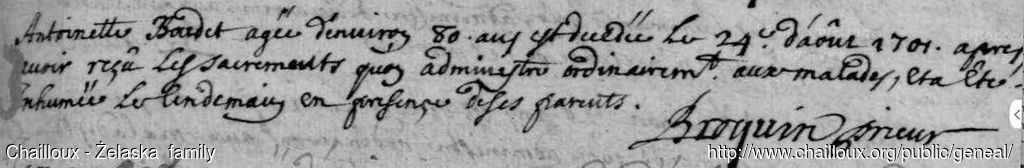 Antoinette Bordet agée denviron 80. ans est decedée Le 24.e d'aôut 1701. apres
avoir reçû Les sacrements qu'on administre ordinairem.t aux malades, et a êté
inhumée Le Lendemain en presençe de ses parents.
Broquin prieur
Chailloux - Żelaska family
http://www.chailloux.org/public/geneal/